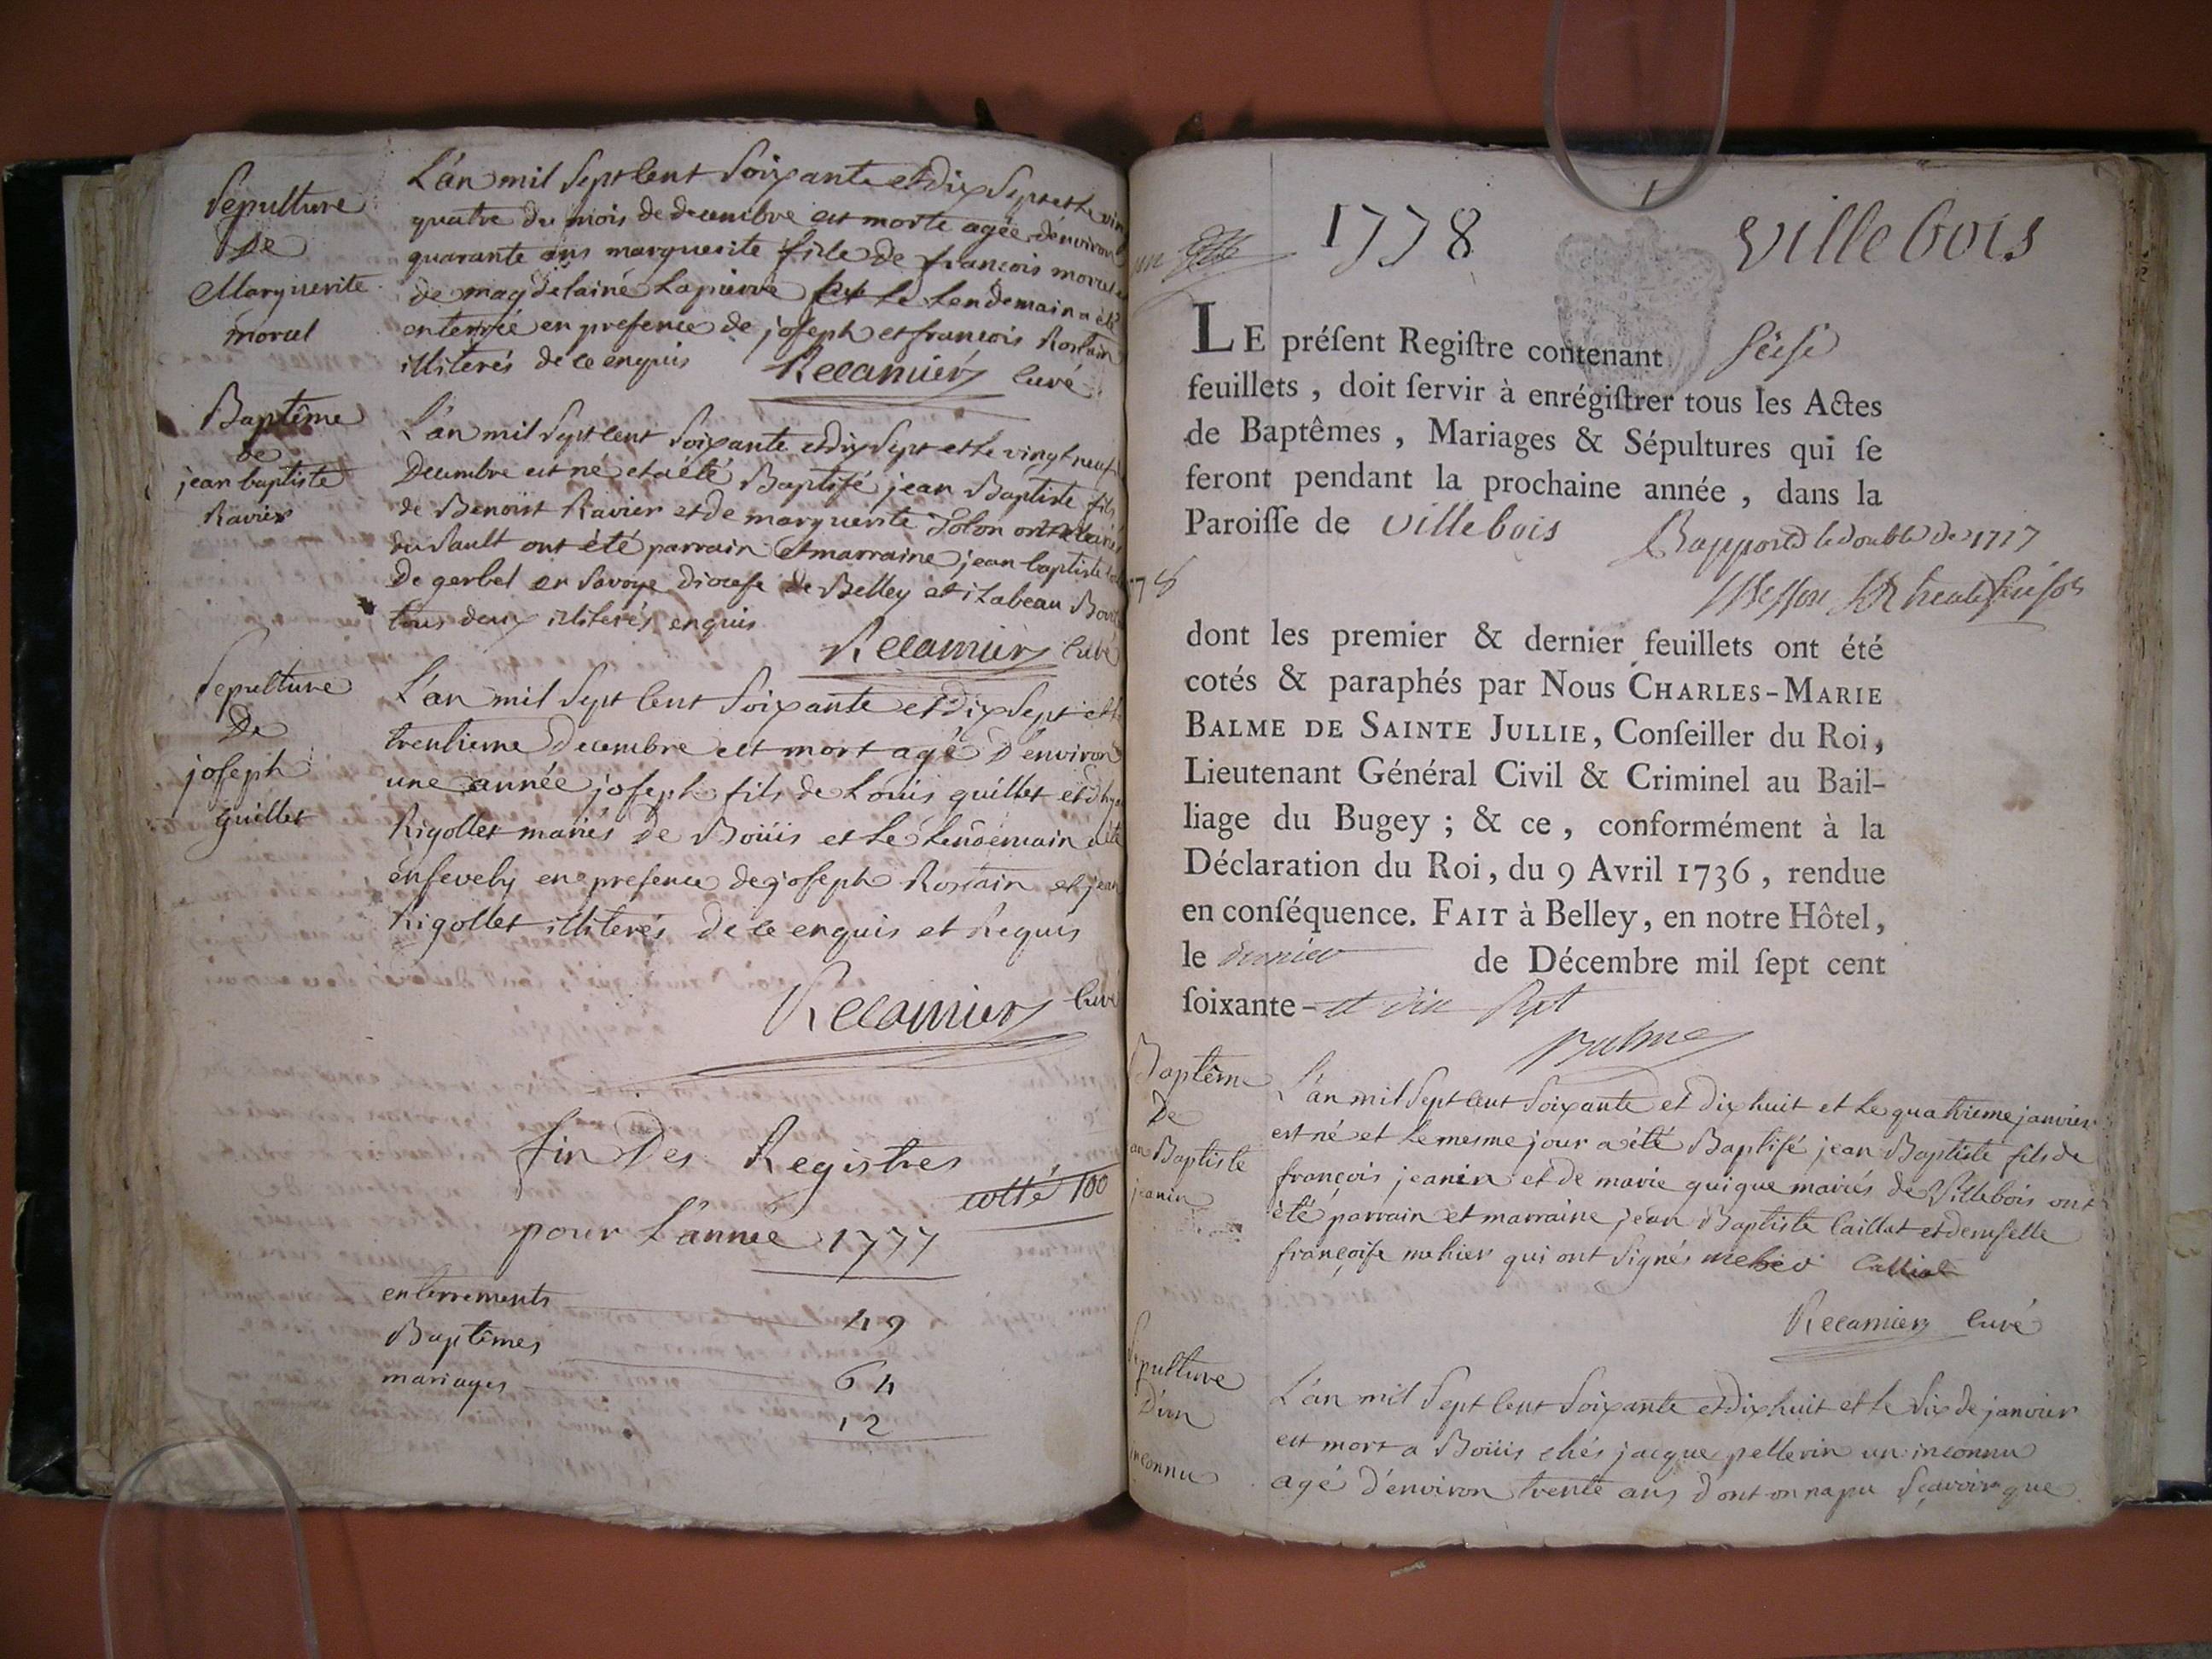 Sepulture
De
Marguerite
morael
L'an mil Sept Cent Soixante et dix Sept et le vin
quatre du mois de decembre est morte agée d'environ
quarante ans marguerite fille de francois morael
de magdelaine Lapierre et le Lendemain a été
enterrée en presence de joseph et francois Rostain
illiterés de ce enquis Recamier Curé
Baptême
de
jean baptiste
Ravier
L'an mil Sept Cent Soixante et dix Sept et le vingt neuf
Decembre est né et a été Baptisé jean Baptiste fils
de Benoist Ravier et de marguerite
du Sault ont été parrain et marraine jean baptiste
De gerbel en Savoye Diocese de Belley et isabeau
tous deux illiterés enquis
Recamier Curé
Sepulture
De
joseph
guillet
L'an mil Sept Cent Soixante et dix Sept et le
trentieme Decembre est mort agé D'environ
une année joseph fils de Louis guillet et
Rigollet mariés de Boüis et le Lendemain a été
ensevely en presence de joseph Rostain et jean
Rigollet illiterés de ce enquis et Requis
Recamier Curé
fin Des Registres
cotté 100
pour L'année 1777
enterrements 49
Baptêmes 64
mariages 12
1778 Villebois
LE préſent Regiſtre contenant seise
feuillets, doit ſervir à enrégiſtrer tous les Actes
de Baptêmes, Mariages & Sépultures qui ſe
feront pendant la prochaine année, dans la
Paroiſſe de Villebois Rapporté le double de 1777
78
dont les premier & dernier feuillets ont été
cotés & paraphés par Nous CHARLES-MARIE
BALME DE SAINTE JULLIE, Conſeiller du Roi,
Lieutenant Général Civil & Criminel au Bail-
liage du Bugey ; & ce, conformément à la
Déclaration du Roi, du 9 Avril 1736, rendue
en conſéquence. FAIT à Belley, en notre Hôtel,
le dernier de Décembre mil ſept cent
ſoixante- et dix Sept
Balme
Baptême
De
an Baptiste
jeanin
L'an mil Sept Cent Soixante et dix huit et le quatrieme janvier
est né et le mesme jour a été Baptisé jean Baptiste fils de
françois jeanin et de marie guigue mariés de Villebois ont
été parrain et marraine jean Baptiste Caillat et demoiselle
françoise mehier qui ont Signés mehier Calliat
Recamier Curé
Sepulture
D'un
inconnu
L'an mil Sept Cent Soixante et dix huit et le Six de janvier
est mort a Boüis chés jacque pellerin un inconnu
agé d'environ trente ans dont on na pu Sçavoir que